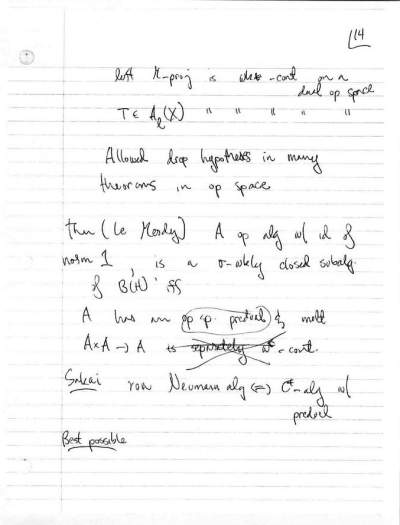 14
left M-proj is weak*-cont on a
dual op space
T ∈ A_ℓ(X) " " " " "
Allowed drop hypothesis in many
theorems in op space
Thm (Le Merdy) A op alg w/ id of
norm 1, is a σ-wkly closed subalg
of B(H) iff
A has an op sp. predual & mult
A×A → A is separately w*-cont.
Sakai von Neumann alg ⇔ C*-alg w/
predual
Best possible